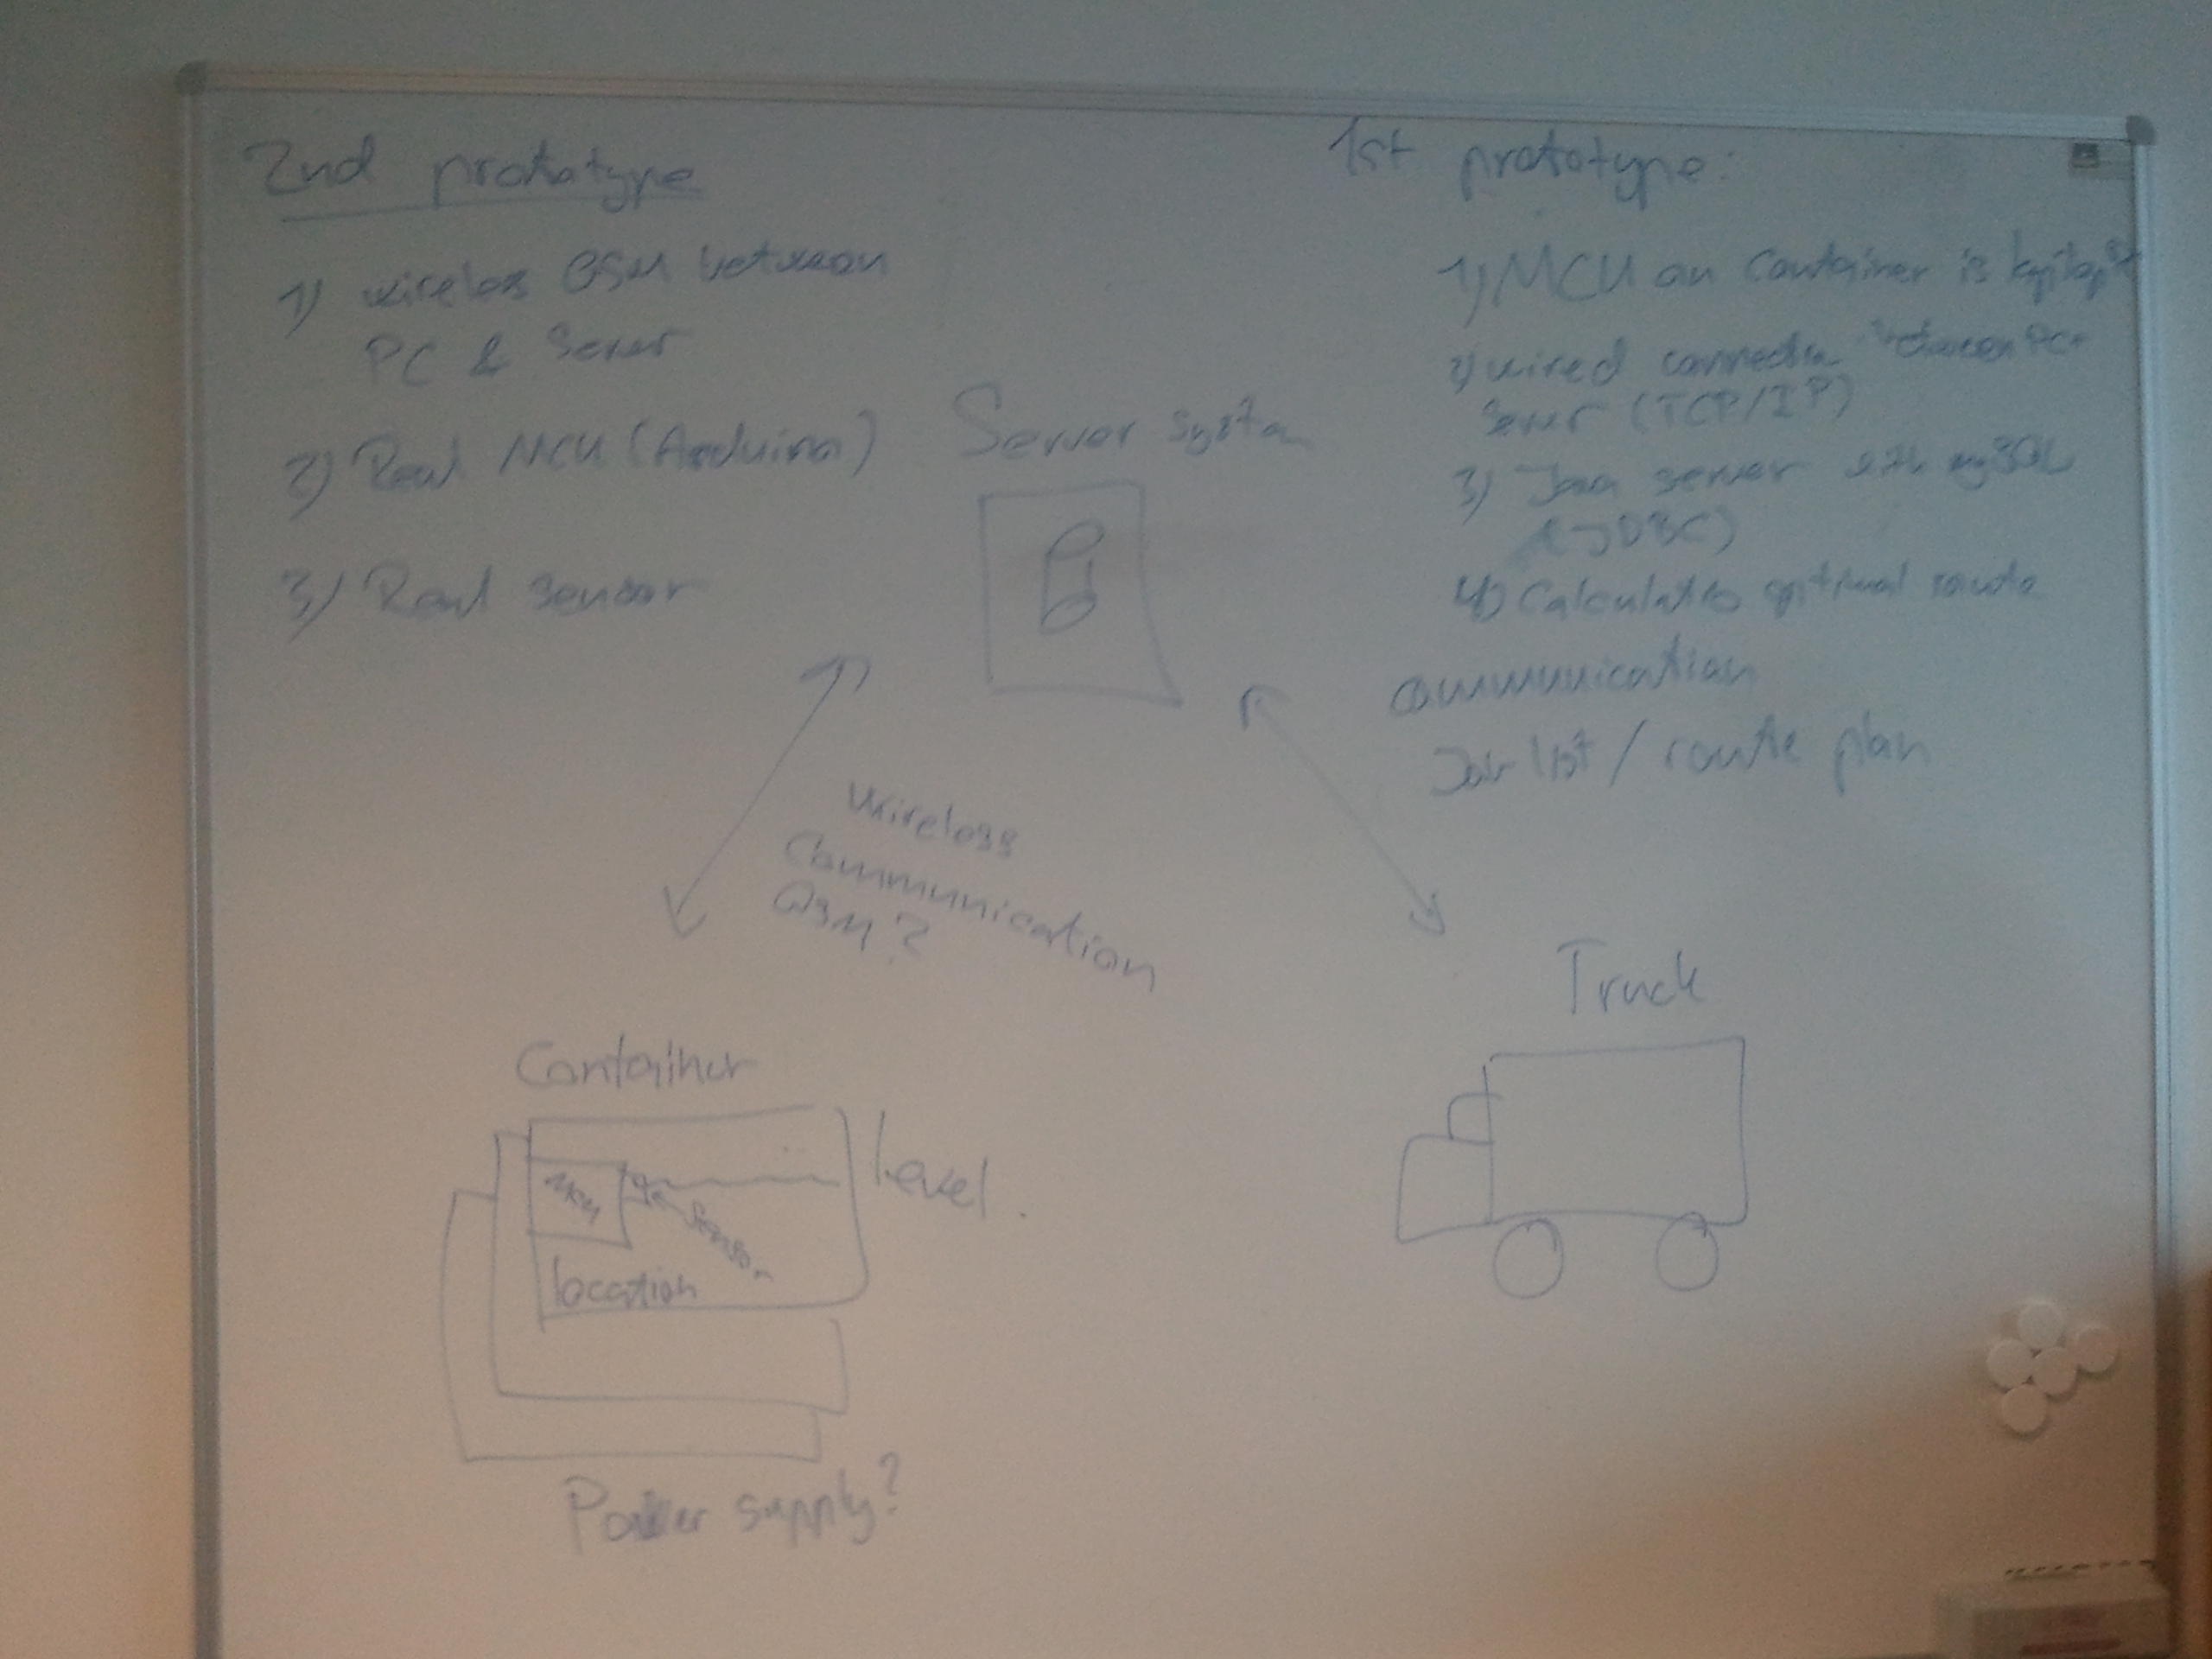 2nd prototype
1) wireless GSM between
PC & Server
2) Real MCU (Arduino)
3) Real sensor
1st prototype:
1) MCU on Container is
2) wired connection between PC+
Server (TCP/IP)
3) Java server with mySQL
(JDBC)
4) Calculates optimal route
Server system
communication
Job list / route plan
Wireless
Communication
GSM?
Container
MCU
Sensor
level.
location
Power supply?
Truck